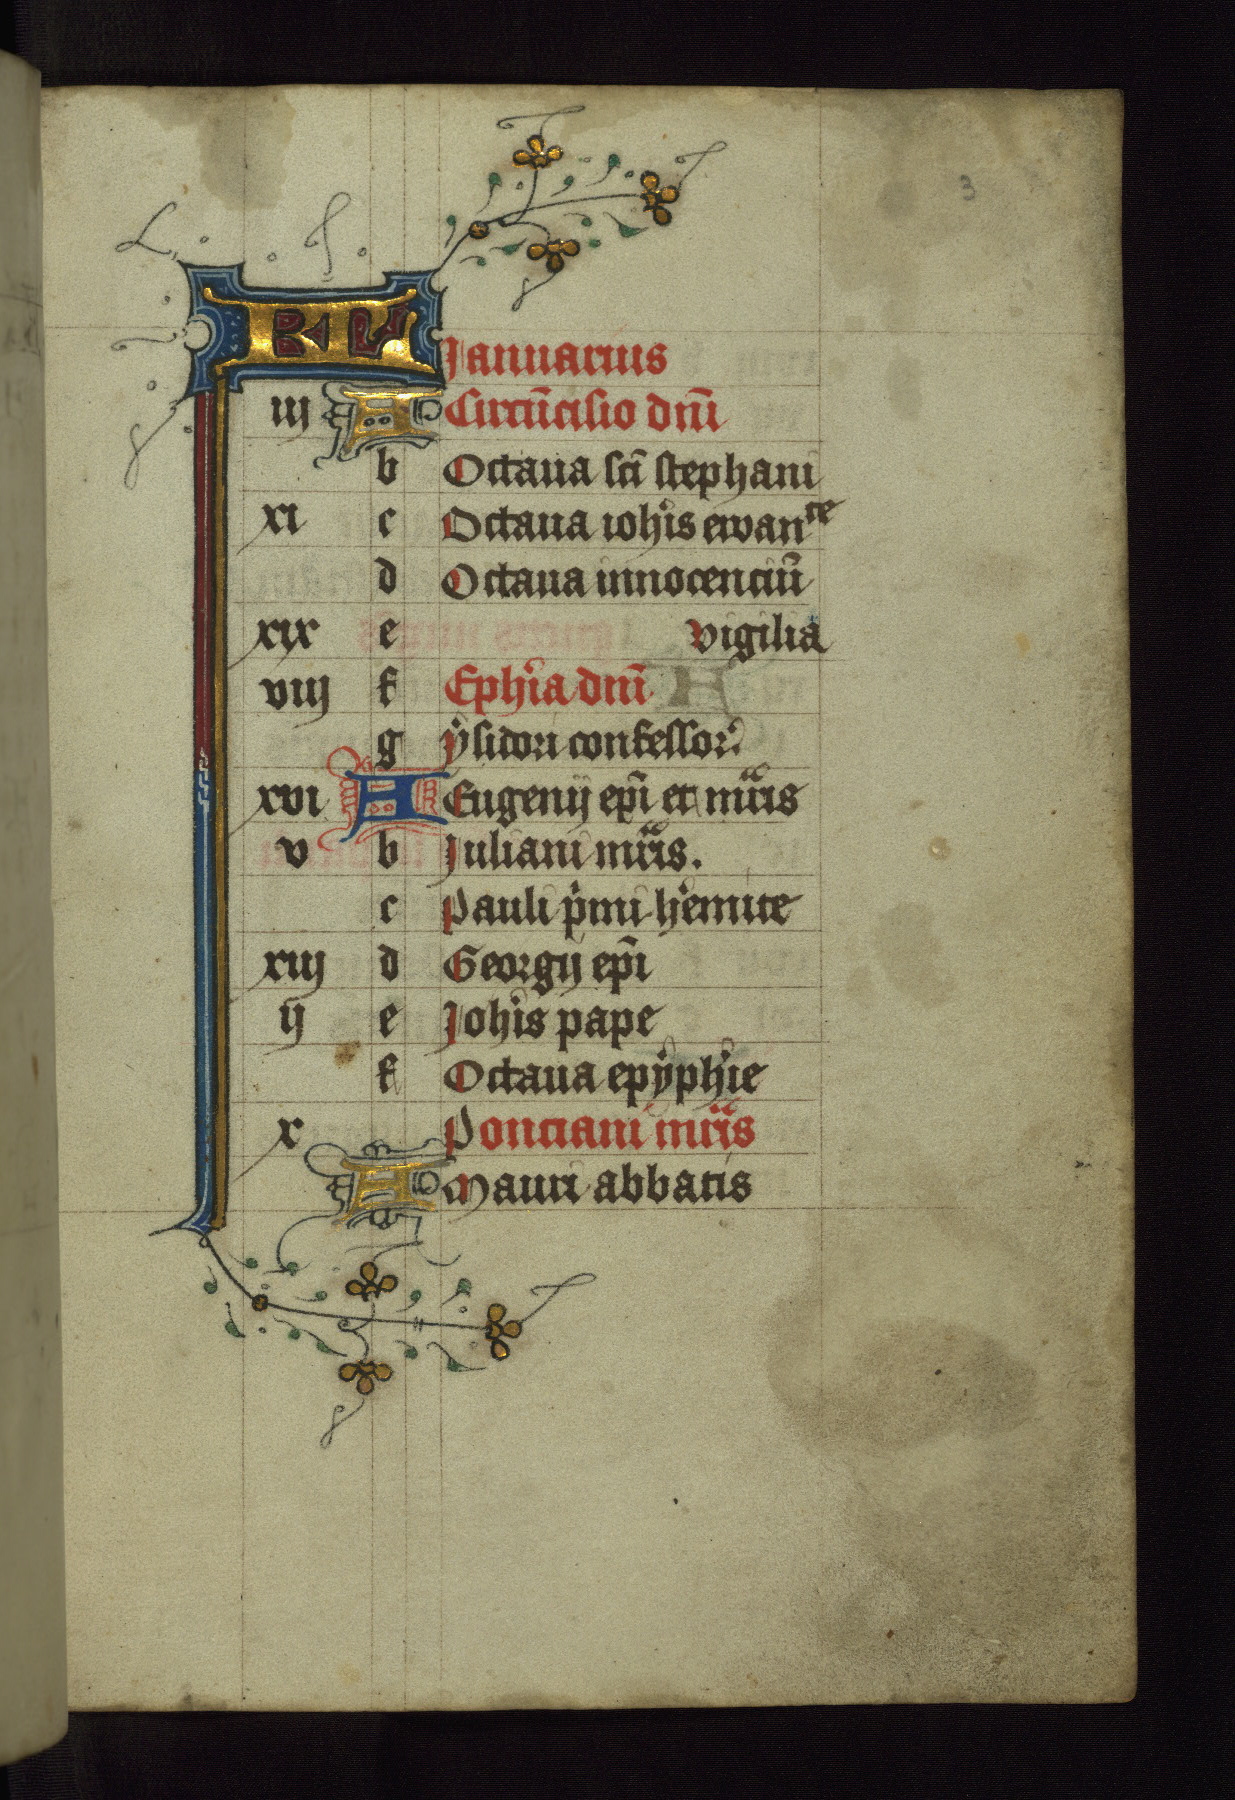 3
KL Januarius
iij A Circũcisio dñi
b Octaua sci̅ stephani
xi c Octaua ioh̅is ewan te
d Octaua innocenciũ
xix e vigilia
viij f Eph̅ia dñi
g ẏsidori confessor̃
xvi A Eugenij ep̅i et mr̅is
v b Juliani mr̅is.
c Pauli p̅mi h̅emite
xiij d Georgij ep̅i
ij e Joh̅is pape
f Octaua epẏph̅ie
x Ponciani mr̅is
A Mauri abbatis